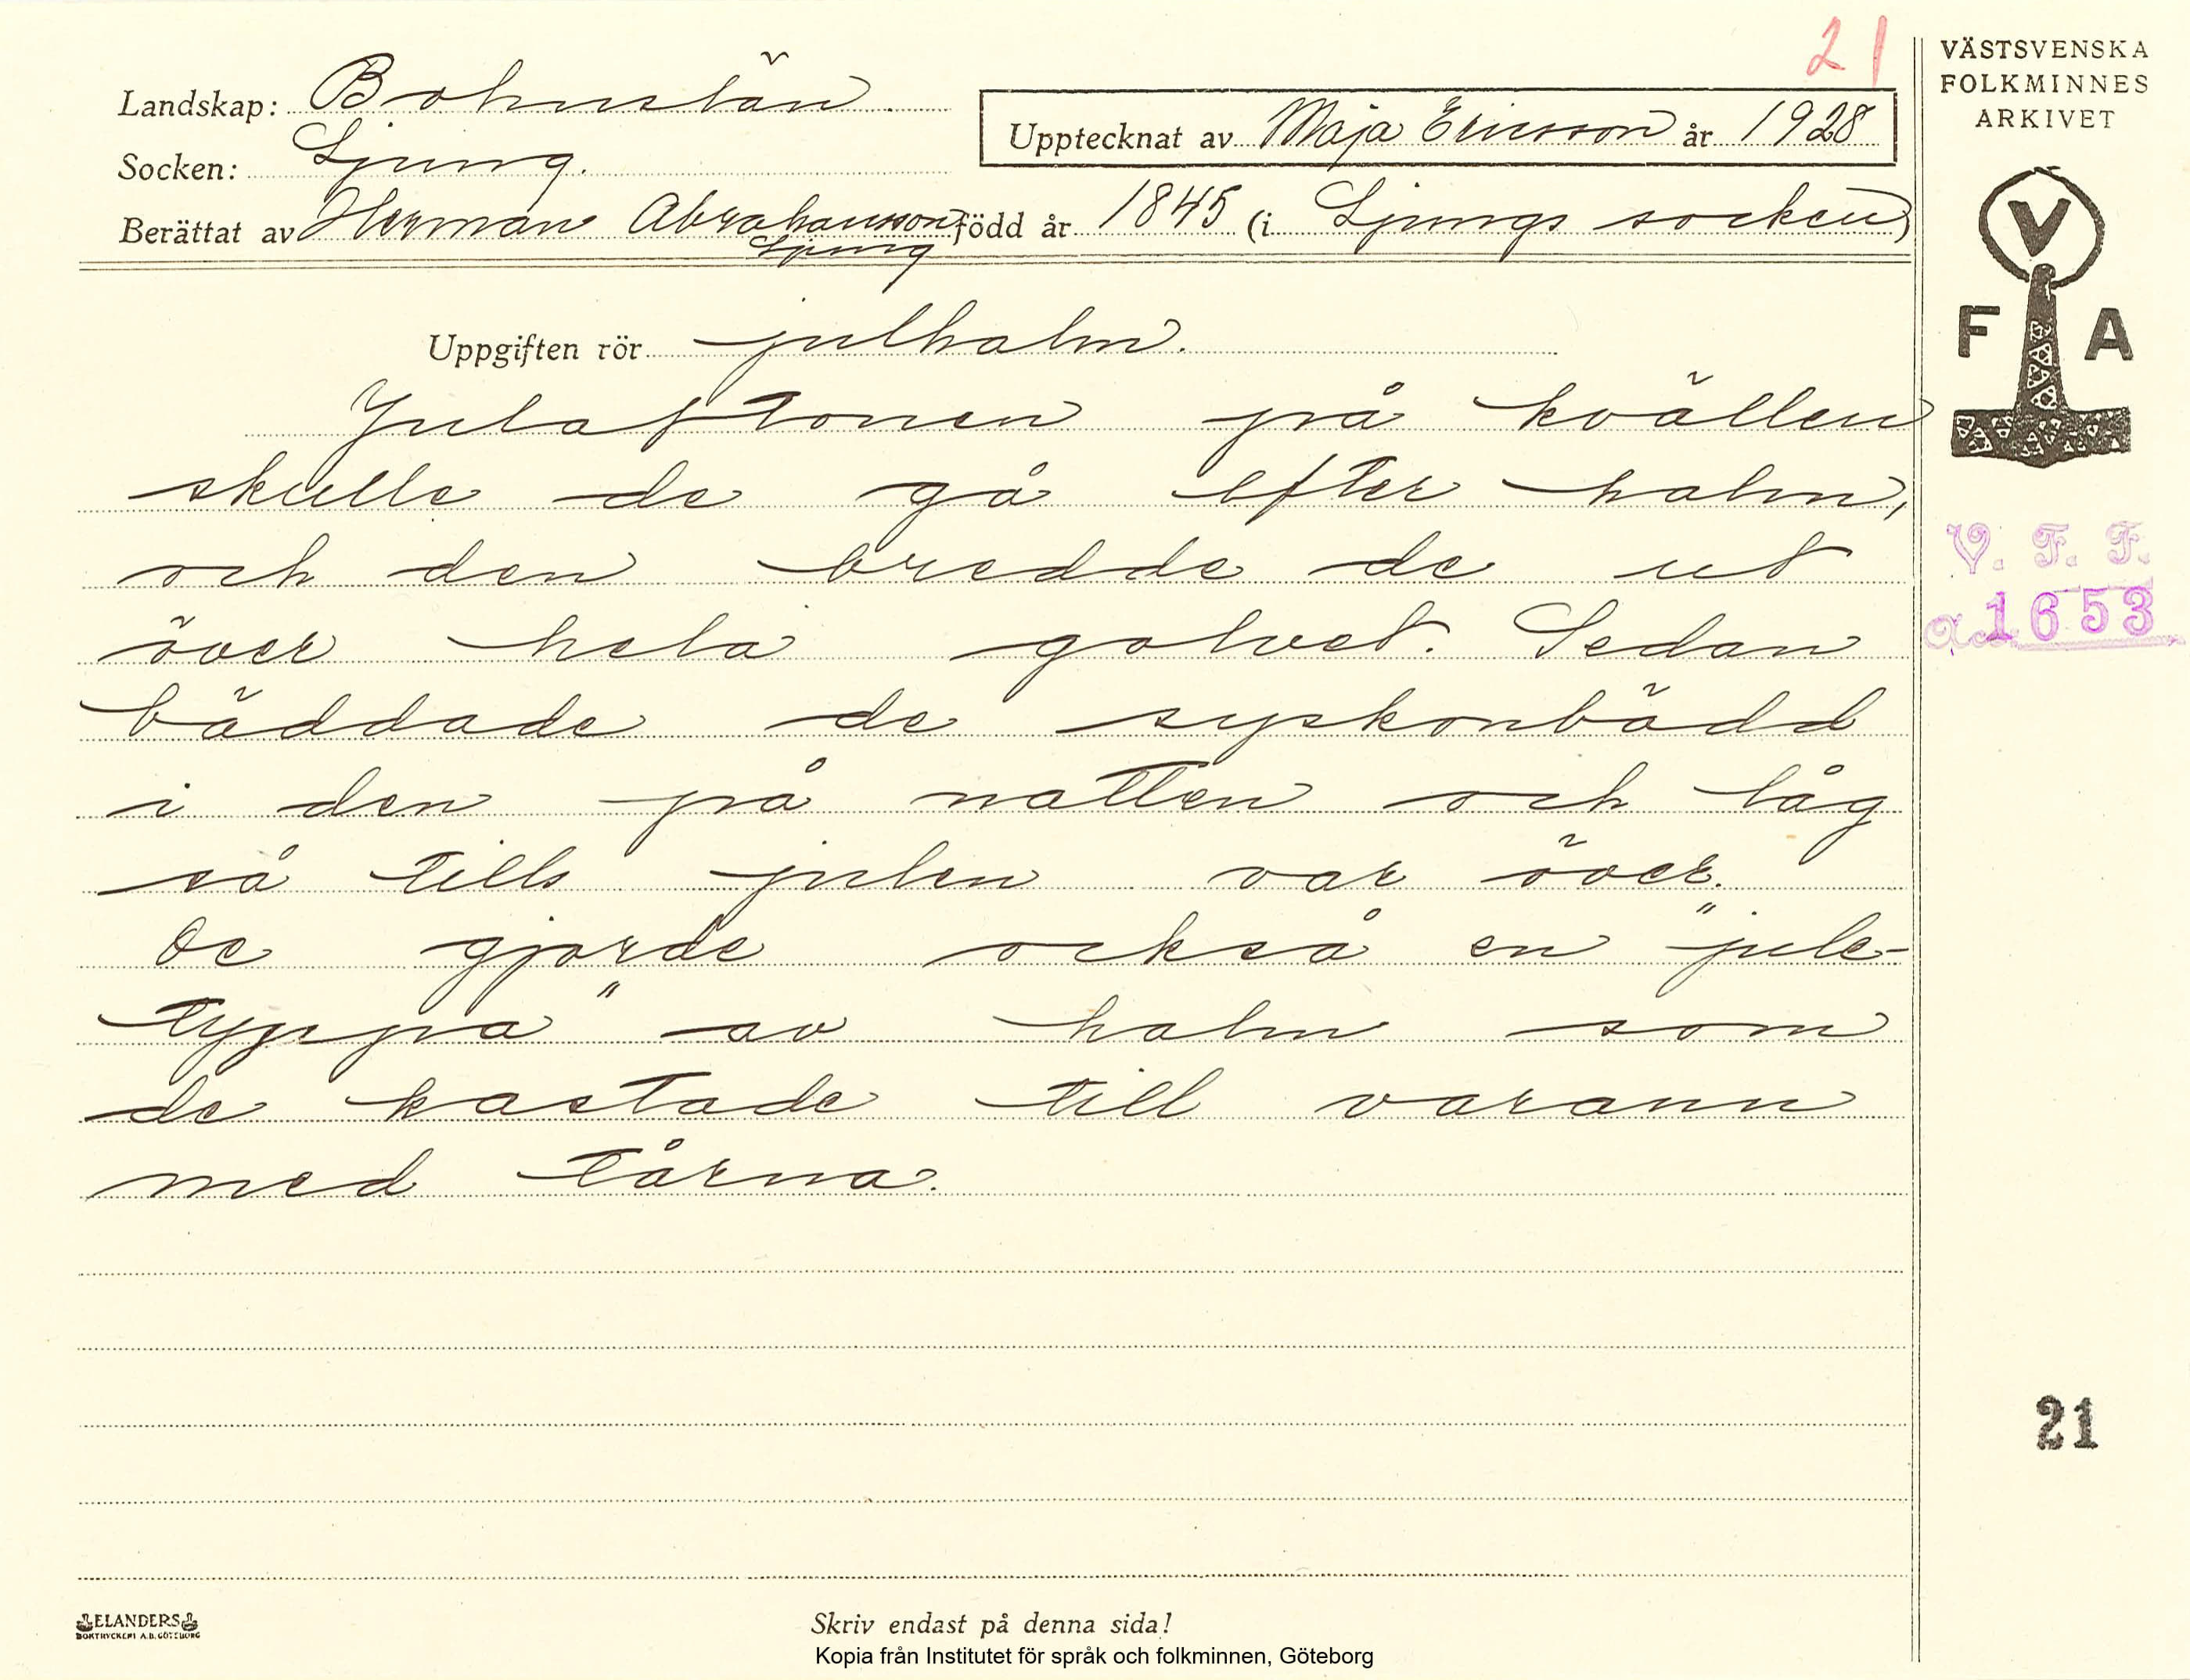 21
VÄSTSVENSKA
FOLKMINNES
ARKIVET
Landskap: Bohuslän.
Upptecknat av Maja Ericsson år 1928
Socken: Ljung.
Berättat av Herman Abrahamsson född år 1845 (i Ljungs socken)
Ljung
V
F A
Uppgiften rör julhalm.
Julaftonen på kvällen
skulle de gå efter halm,
och den bredde de ut
över hela golvet. Sedan
bäddade de syskonbädd
i den på natten och låg
så tills julen var över.
De gjorde också en "jule-
typpa" av halm som
de kastade till varann
med tårna.
V. F. F.
1653
21
ELANDERS
BOKTRYCKERI A.B. GÖTEBORG
Skriv endast på denna sida!
Kopia från Institutet för språk och folkminnen, Göteborg